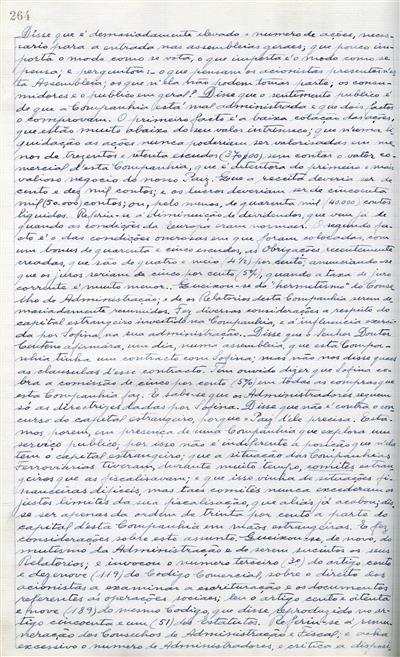 264
Disse que é demasiadamente elevado o numero de ações, neces-
sario para a entrada nas assembleias geraes; que pouco im-
porta o modo como se vota, o que importa é o modo como se
pensa; e perguntou: - o que pensam os acionistas presentes n'es-
ta Assembleia; os que n'ela não podem tomar parte; os consu-
midores e publico em geral? Disse que o sentimento publico é
de que a Companhia está mal administrada e que dois factos
o comprovam. O primeiro facto é a baixa cotação das ações,
que estão muito abaixo do seu valor intrinseco; que n'uma li-
quidação as ações nunca poderiam ser valorisadas em me-
nos de trezentos e setenta escudos (370$00) sem contar o valor co-
mercial d'esta Companhia, que é detentora do primeiro e mais
valioso negocio do nosso Paiz. Que a receita deveria ser de
cento e dez mil contos; e os lucros deveriam ser de cincoenta
mil (50.000) contos; ou, pelo menos, de quarenta mil (40.000) contos
liquidos. Referiu-se á diminuição de dividendos, que vem já de
quando as condições da Europa eram normaes. O segundo fa-
cto é o das condições onerosas em que foram colocadas, com
um bonus de quarenta e cinco escudos, as Obrigações recentemente
creadas, que são de quatro e meio 4½ por cento, anunciando-se
que os juros seriam de cinco por cento, 5%, quando a taxa de juro
corrente é muito menor. Queixou-se do "hermetismo" do Conse-
lho de Administração, e de os Relatorios desta Companhia serem de-
masiadamente resumidos. Fez diversas considerações a respeito do
capital estrangeiro investido na Companhia, e a influencia exerci-
da por Sofina, na sua administração. Disse que o Senhor Doutor
Centeno afirmára, um dia, numa assembleia, que esta Compa-
nhia tinha um contracto com Sofina; mas não nos disse quaes
as clausulas d'esse contracto. Tem ouvido dizer que Sofina co-
bra a comissão de cinco por cento (5%) em todas as compras que
esta Companhia faz. E sabe-se que os Administradores seguem
só as directrizes dadas por Sofina. Disse que não é contra o con-
curso do capital estrangeiro, porque o Paiz d'ele precisa. Está-
mos, porem, em presença de uma Companhia que explora um
serviço publico; por isso não é indiferente a posição que n'ela
tem o capital estrangeiro; que a situação das Companhias
Ferroviarias tiveram, durante muito tempo, comités estran-
geiros que as fiscalisavam; e que isso vinha de situações fi-
nanceiras dificeis, mas taes comités nunca excederam os
justos limites da sua fiscalisação, que aliás já acabou; dis-
se ser apenas da ordem de trinta por cento a parte do
capital d'esta Companhia em mãos estrangeiras. E fez
considerações sobre este assunto. Queixou-se, de novo, do
mutismo da Administração e de serem sucintos os seus
Relatorios; e invocou o numero terceiro (3º) do artigo cento
e dezenove (119) do Codigo Comercial, sobre o direito dos
acionistas a examinar a escrituração e os documentos
referentes ás operações sociaes; leu o artigo cento e oitenta
e nove (189) do mesmo Codigo, que disse reproduzido no ar-
tigo cincoenta e um (51) dos Estatutos. Referiu-se á remu-
neração dos Conselhos de Administração e Fiscal; e acha
excessivo o numero de Administradores, e critica a disposi-